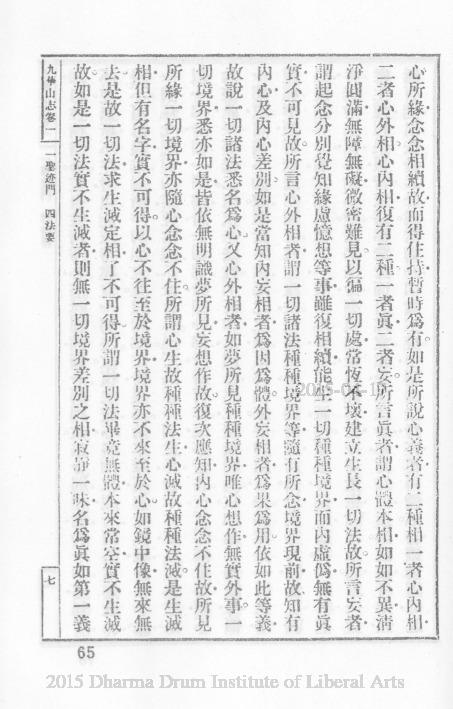 心所緣念念相續故而得住持暫時爲有如是所說心義者有二種相一者心內相
二者心外相心內相復有二種一者眞二者妄所言眞者謂心體本相如如不異淸
淨圓滿無障無礙微密難見以徧一切處常恆不壞建立生長一切法故所言妄者
謂起念分別覺知緣慮憶想等事雖復相續能生一切種種境界而內虛僞無有眞
實不可見故所言心外相者謂一切諸法種種境界等隨有所念境界現前故知有
內心及內心差別如是當知內妄相者爲因爲體外妄相者爲果爲用依如此等義
故說一切諸法悉名爲心又心外相者如夢所見種種境界唯心想作無實外事一
切境界悉亦如是皆依無明識夢所見妄想作故復次應知內心念念不住故所見
所緣一切境界亦隨心念念不住所謂心生故種種法生心滅故種種法滅是生滅
相但有名字實不可得以心不往至於境界境界亦不來至於心如鏡中像無來無
去是故一切法求生滅定相了不可得所謂一切法畢竟無體本來常空實不生滅
故如是一切法實不生滅者則無一切境界差別之相寂靜一味名爲眞如第一義
九華山志卷一 一聖迹門 四法要
七
65
2015 Dharma Drum Institute of Liberal Arts